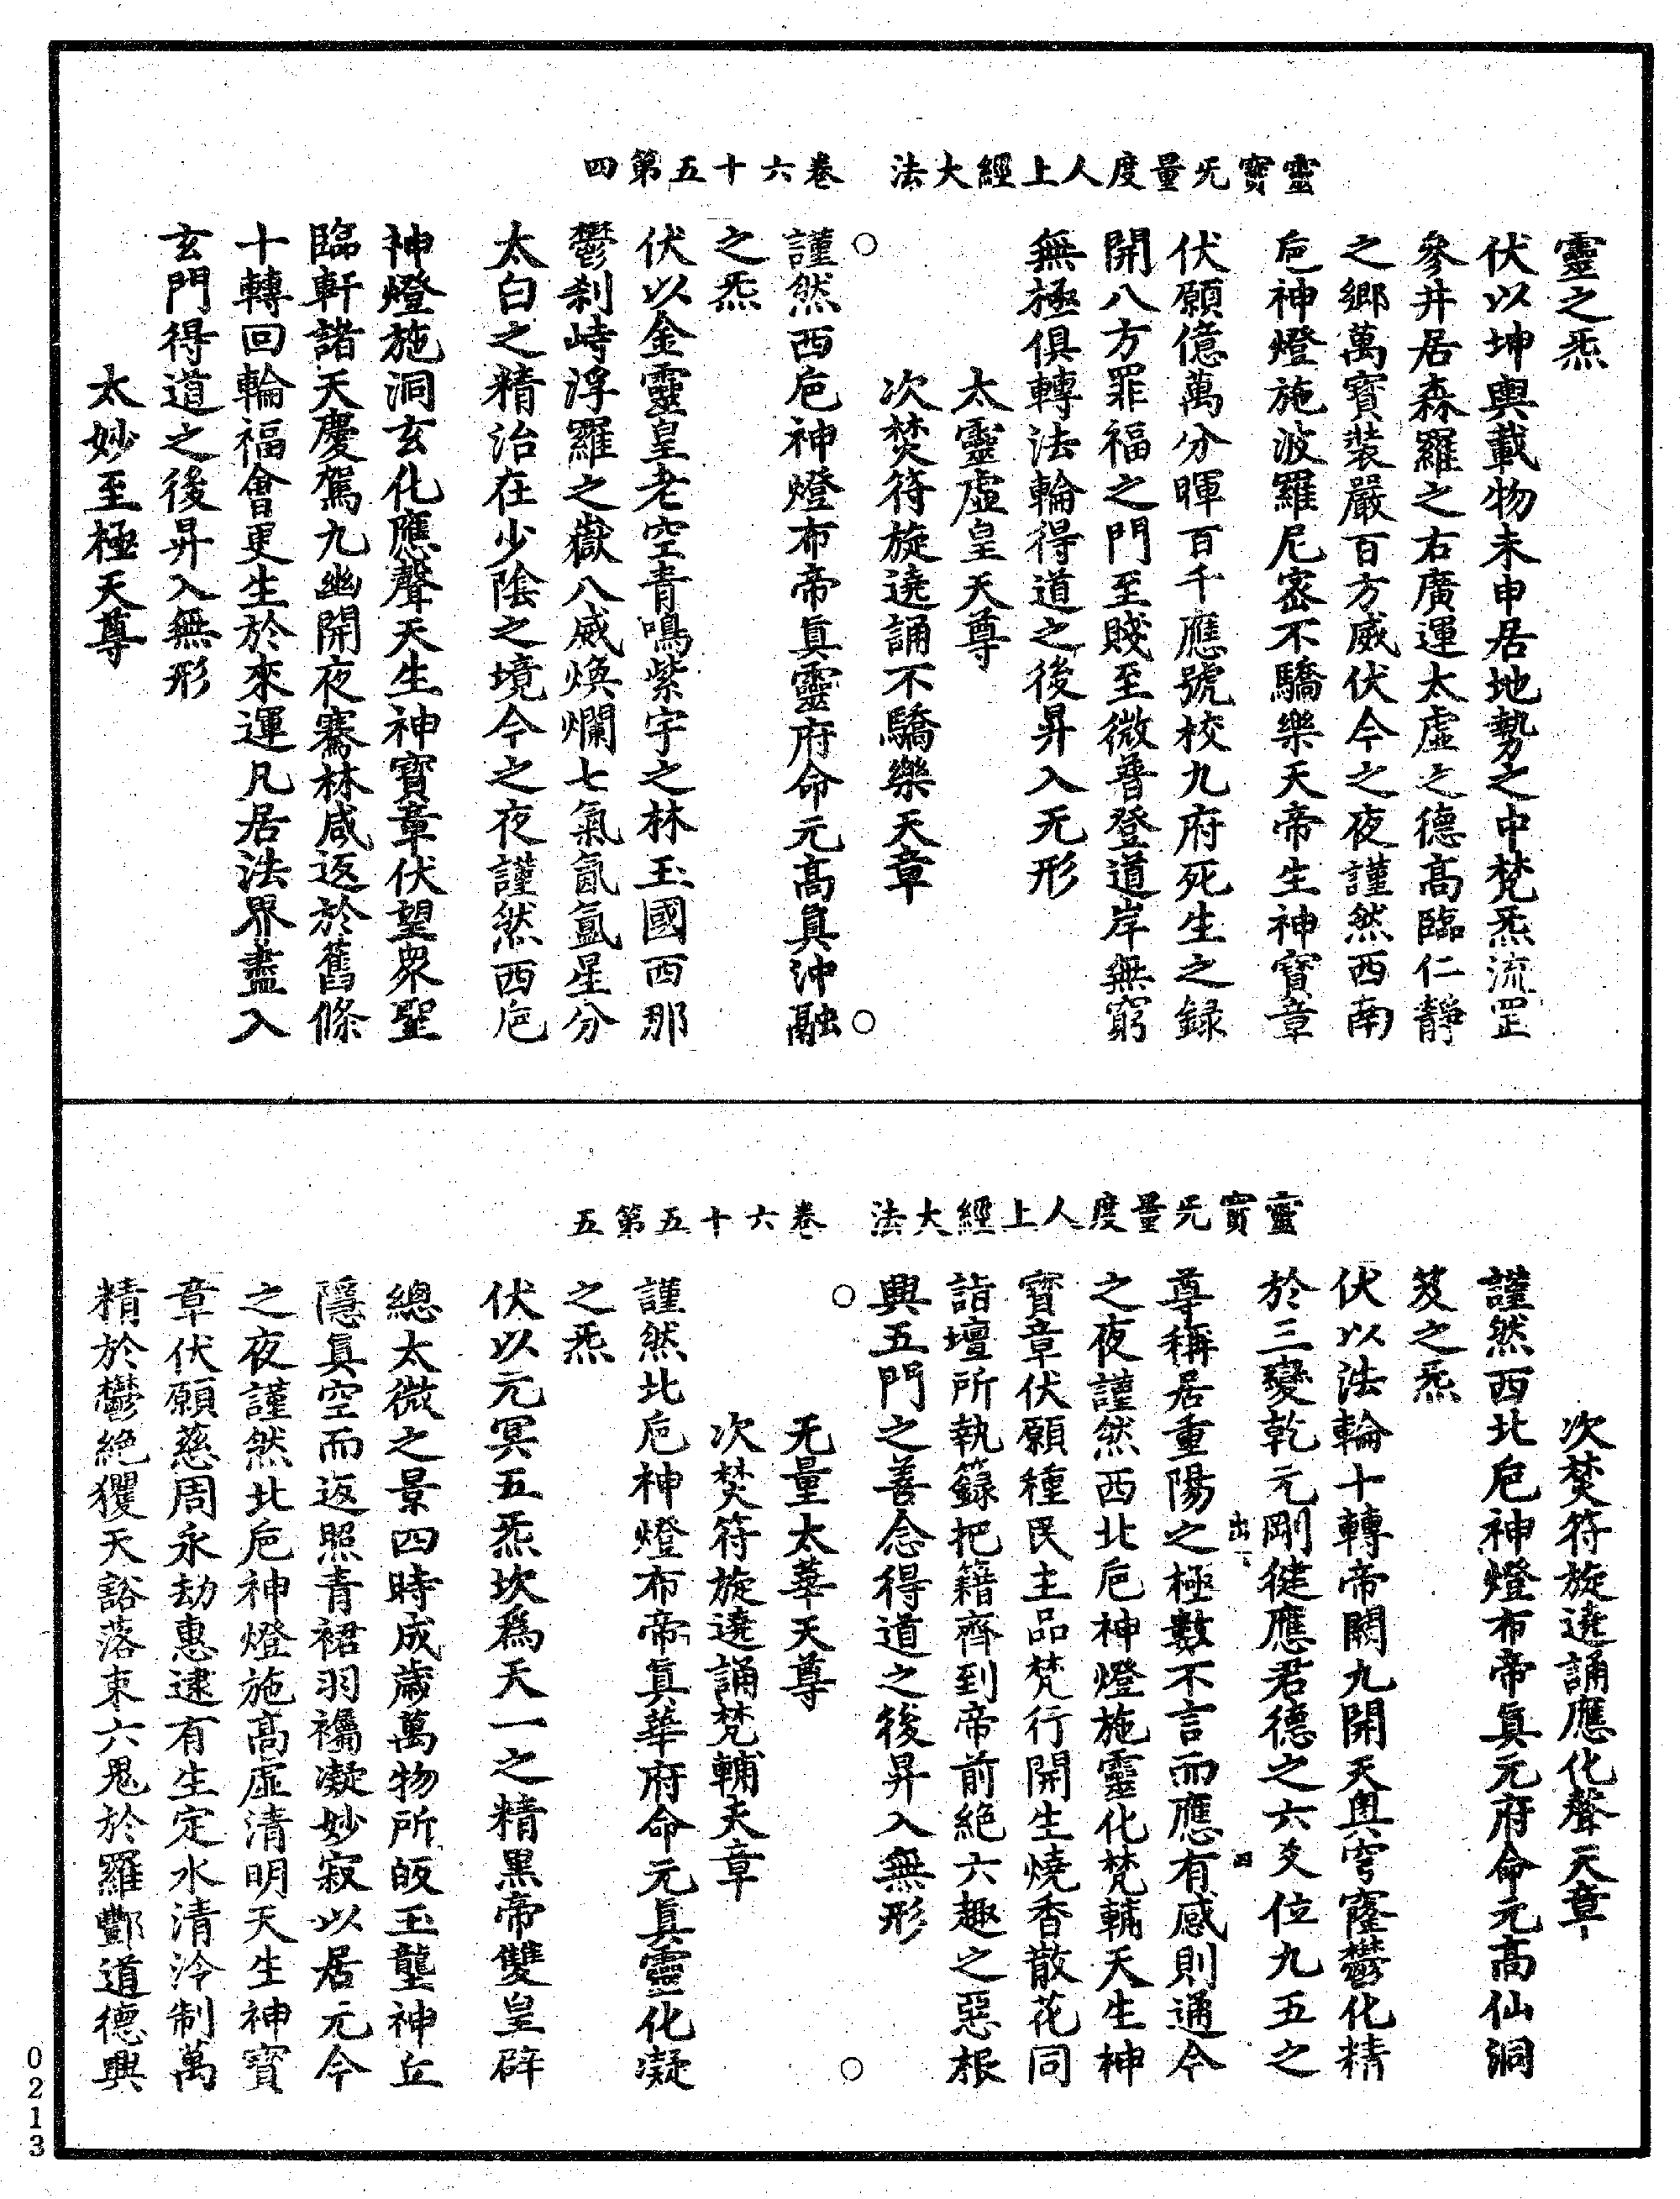 靈寶旡量度人上經大法　卷六十五第四
靈之炁
伏以坤輿載物未申居地勢之中梵炁流罡
參井居森羅之右廣運太虛之德高臨仁靜
之鄉萬寶裝嚴百方威伏今之夜謹然西南
巵神燈施波羅尼密不驕樂天帝生神寶章
伏願億萬分暉百千應號校九府死生之録
開八方罪福之門至賤至微普登道岸無窮
無極俱轉法輪得道之後昇入无形
太靈虛皇天尊
次焚符旋遶誦不驕樂天章
○謹然西巵神燈布帝眞靈府命元高眞沖融○
之炁
伏以金靈皇老空青鳴紫宇之林玉國西那
鬱刹峙浮羅之嶽八威煥爛七氣氤氳星分
太白之精治在少陰之境今之夜謹然西巵
神燈施洞玄化應聲天生神寶章伏望衆聖
臨軒諸天慶駕九幽開夜騫林咸返於舊條
十轉回輪福會更生於來運凡居法界盡入
玄門得道之後昇入無形
太妙至極天尊
靈寶旡量度人上經大法　卷六十五第五
次焚符旋遶誦應化聲天章
謹然西北巵神燈布帝眞元府命元高仙洞
芨之炁
伏以法輪十轉帝闕九開天奧穹窿鬱化精
於三變乾元剛健應君德之六爻位九五之
尊稱居重陽之極數不言而應有感則通今
之夜謹然西北巵神燈施靈化梵輔天生神
寶章伏願種民主品梵行開生燒香散花同
詣壇所執籙把籍齊到帝前絶六趣之惡根
興五門之善念得道之後昇入無形
无量太華天尊
次焚符旋遶誦梵輔天章
○謹然北巵神燈布帝眞華府命元眞靈化凝○
之炁
伏以元冥五炁坎爲天一之精黑帝雙皇辟
總太微之景四時成歲萬物所皈玉壟神丘
隱眞空而返照青裙羽襡凝妙寂以居元今
之夜謹然北巵神燈施高虛清明天生神寶
章伏願慈周永劫惠逮有生定水清泠制萬
精於鬱絶玃天谿落束六鬼於羅酆道德興
0213